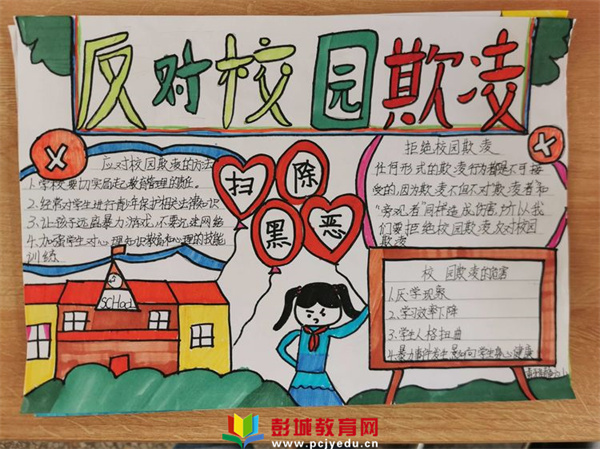 反对校园欺凌
应对校园欺凌的方法
1.学校要切实局起教育管理的责任。
2.经常对学生进行青少年保护相关法常识
3.让孩子远离暴力游戏,不要沉迷网络
4.加强学生对心理知识教育和心理的技能
训练
扫 除
黑 恶
拒绝校园欺凌
任何形式的欺凌行为都是不可接
受的,因为欺凌不但不对欺凌者和
"旁观者"同样造成伤害,所以我
们要拒绝校园欺凌反对校园
欺凌
校园欺凌的危害
1.厌学现象
2.学习效率下降
3.学生人格扭曲
4.暴力事件发生影响学生身心健康
SCHooL
彭城教育网
www.pcjyedu.cn